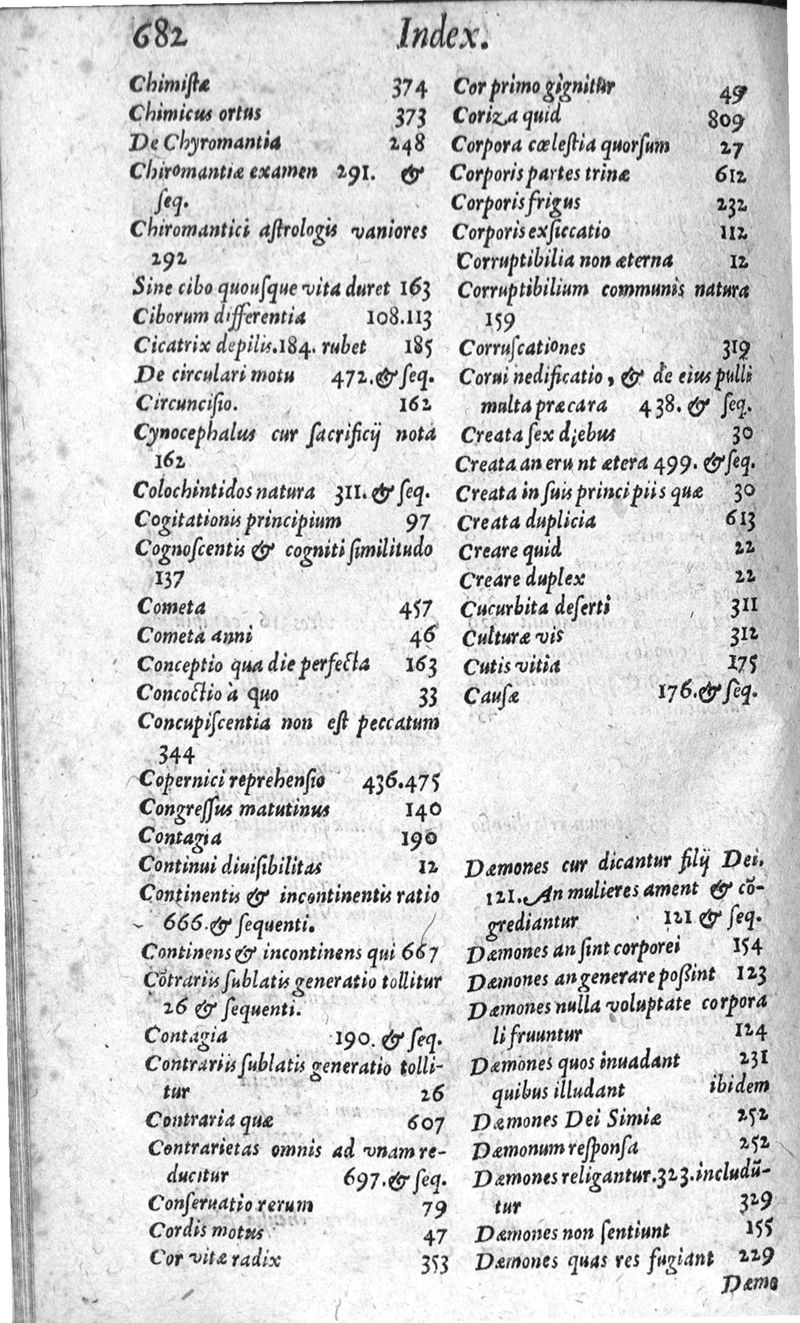 682 Index.
Chimistæ 374
Chimicus ortus 373
De Chyromantia 248
Chiromantiæ examen 291. &
ſeq.
Chiromantici aſtrologis vaniores
292
Sine cibo quouſque vita duret 163
Ciborum differentia 108.113
Cicatrix depilis.184. rubet 185
De circulari motu 472.& ſeq.
Circunciſio. 162
Cynocephalus cur ſacrificij nota
162
Colochintidos natura 311.& ſeq.
Cogitationis principium 97
Cognoſcentis & cogniti ſimilitudo
137
Cometa 457
Cometa anni 46
Conceptio qua die perfecta 163
Concoctio à quo 33
Concupiſcentia non eſt peccatum
344
Copernici reprehenſio 436.475
Congreſſus matutinus 140
Contagia 190
Continui diuiſibilitas 12
Continentis & incontinentis ratio
666.& ſequenti.
Continens & incontinens qui 667
Cõtrariis ſublatis generatio tollitur
26 & ſequenti.
Contagia 190. & ſeq.
Contrariis ſublatis generatio tolli-
tur 26
Contraria quæ 607
Contrarietas omnis ad vnam re-
ducitur 697.& ſeq.
Conſeruatio rerum 79
Cordis motus 47
Cor vitæ radix 353
Cor primo gignitur 49
Coriza quid 809
Corpora cœleſtia quorſum 27
Corporis partes trinæ 612
Corporis frigus 232
Corporis exſiccatio 112
Corruptibilia non æterna 12
Corruptibilium communis natura
159
Corruſcationes 319
Corui nedificatio, & de eius pulli
multa præcara 438. & ſeq.
Creata ſex diebus 30
Creata an erunt ætera 499. & ſeq.
Creata in ſuis principiis quæ 30
Creata duplicia 613
Creare quid 22
Creare duplex 22
Cucurbita deſerti 311
Culturæ vis 312
Cutis vitia 175
Cauſæ 176.& ſeq.
Dæmones cur dicantur filij Dei.
121. An mulieres ament & cõ-
grediantur 121 & ſeq.
Dæmones an ſint corporei 154
Dæmones an generare poßint 123
Dæmones nulla voluptate corpora
li fruuntur 124
Dæmones quos inuadant 231
quibus illudant ibidem
Dæmones Dei Simiæ 252
Dæmonum reſponſa 252
Dæmones religantur.323.includũ-
tur 329
Dæmones non ſentiunt 155
Dæmones quas res fugiant 229
Dæmo